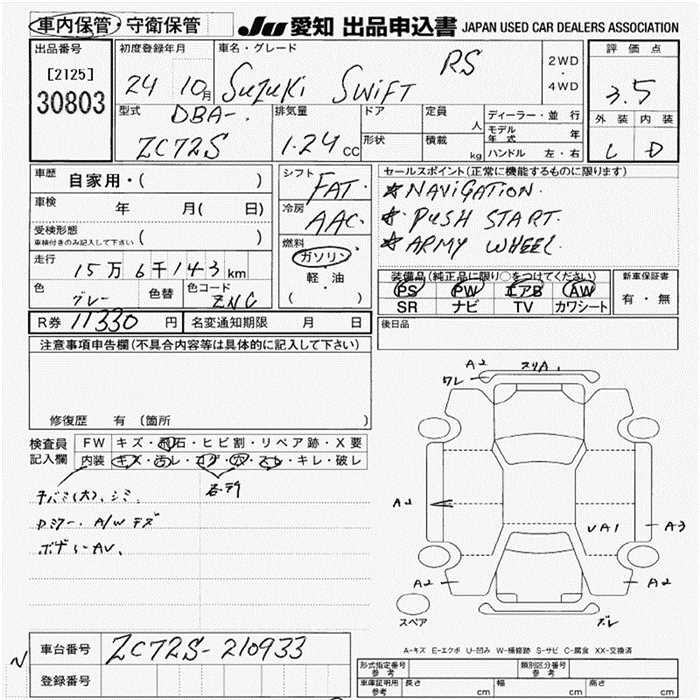 車内保管・守衛保管 JU 愛知 出品申込書 JAPAN USED CAR DEALERS ASSOCIATION
出品番号 初度登録年月 車名・グレード 2WD・4WD 評価点
[2125]
30803
24 10月 SUZUKI SWIFT RS
3.5
型式 DBA-. 排気量 ドア 定員 人 ディーラー・並行 外装 内装
モデル年式 年
ZC72S 1.24 CC 形状 積載 kg ハンドル 左・右 C D
車歴 自家用・( )
車検 年 月( 日)
受検形態
車検付きのみ記入して下さい ( )
走行 15万6千143km
色 グレー 色替 色コード ZNC
シフト FAT.
冷房 AAC.
燃料 ガソリン・軽・油
( )
セールスポイント(正常に機能するものに限ります)
★NAVIGATION.
★PUSH START.
★ARMY WHEEL.
装備品(純正品に限り○をつけてください) 新車保証書
PS PW エアB AW 有・無
SR ナビ TV カワシート
R券 11330 円 名変通知期限 月 日 後日品
注意事項申告欄(不具合内容等は具体的に記入して下さい)
修復歴 有 (箇所 )
検査員記入欄 FW キズ・飛石・ヒビ割・リペア跡・X要
内装 キズ・汚レ・コゲ・穴・スレ・キレ・破レ
A2
ワレ
スリA
A2
UA1
A3
A2
A2
スペア
A-キズ E-エクボ U-凹み W-補修跡 S-サビ C-腐食 XX-交換済
車台番号 ZC72S-210933
登録番号
形式指定番号 参考 類別区分番号 参考
車庫証明用 参考 長さ cm 幅 cm 高さ cm